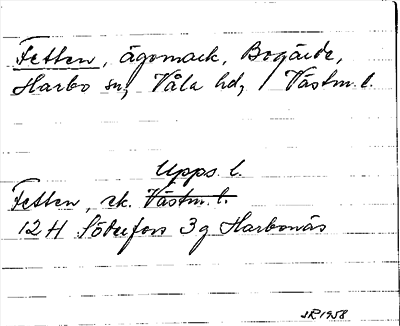 Fetten, ägomark, Bogärde,
Harbo sn, Våla hd, Västm. l.
Upps. l.
Fetten, ek. Västm. l.
12 H Söderfors 3g Harbonäs
JR 1958